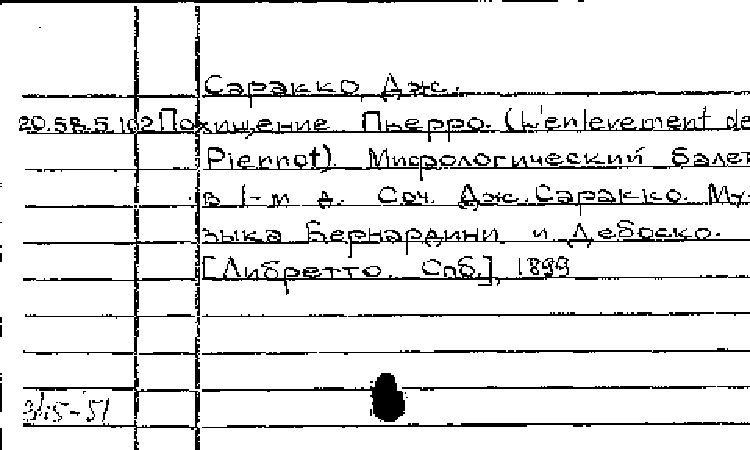 Саракко, Дж.
20.58.5.102 Похищение Пьерро. (L'enlevement de
Pierrot). Мифологический балет
в 1-м д. Соч. Дж. Саракко. Му-
зыка Бернардини и Дебоско.
[Либретто. Спб.], 1899